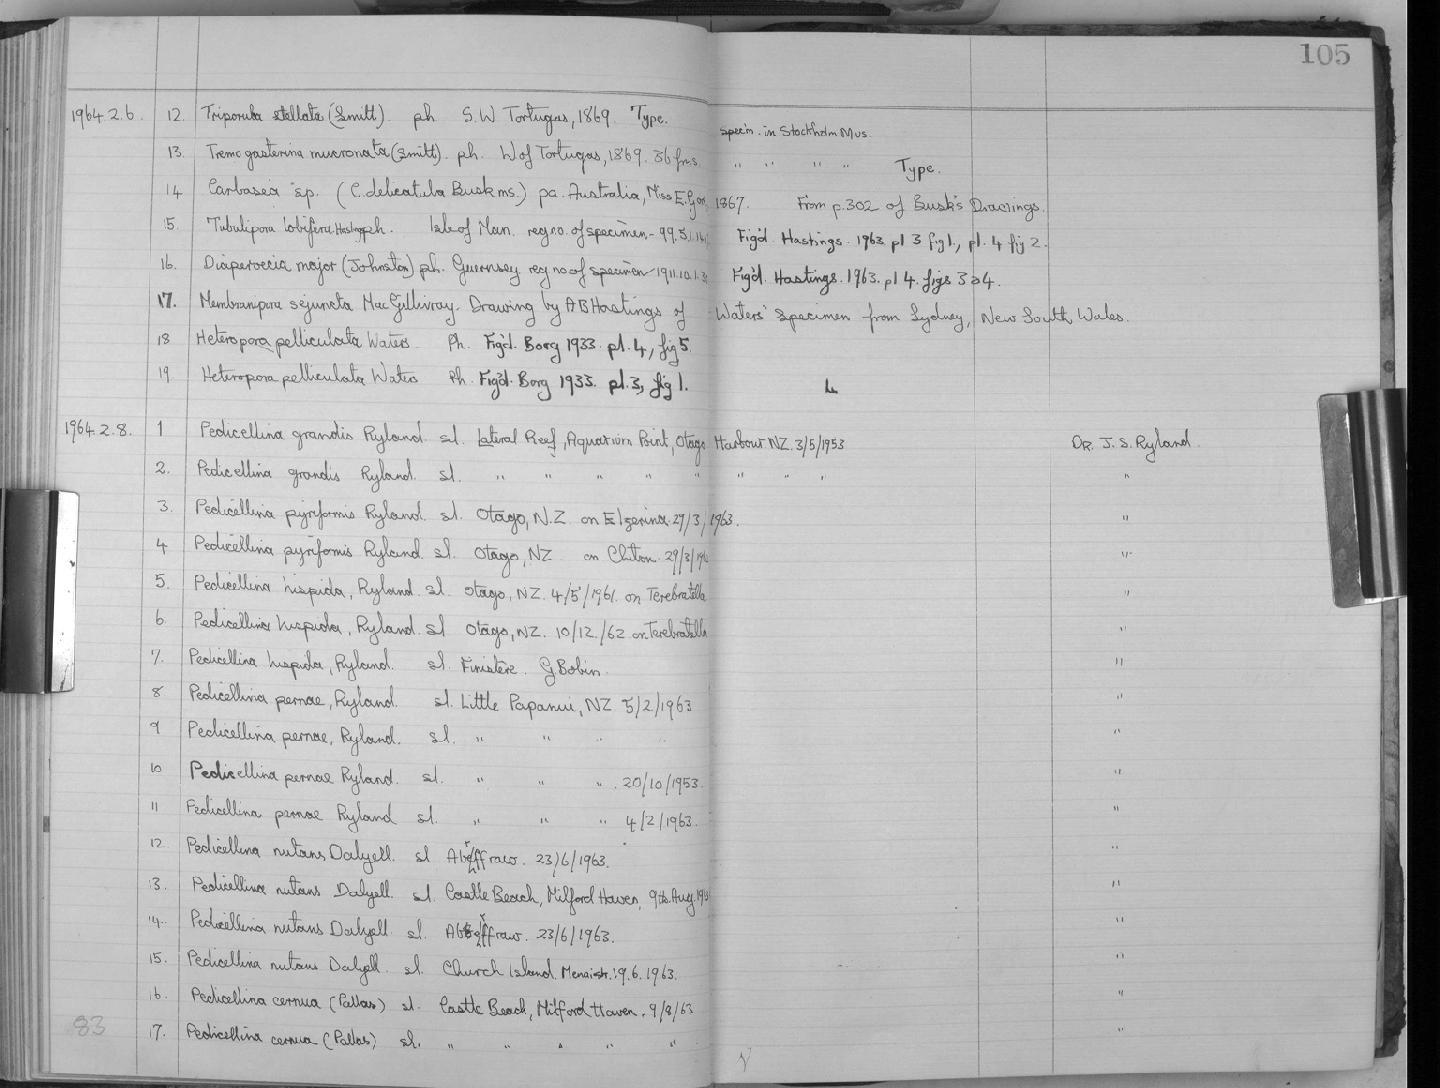 105
1964.2.6. 12. Triporula stellata (Smitt). ph S.W Tortugas, 1869. Type. specm. in Stockholm Mus.
13. Tremogasterina mucronata (Smitt). ph. W of Tortugas, 1869. 36 fms " " " " Type.
14 Carbasea sp. (C. delicatula Busk ms.) pa. Australia, Miss E. Gore, 1867. From p.302 of Busk's Drawings.
15. Tubulipora lobifera Hastings ph. Isle of Man. reg no. of specimen - 99.5.1. Fig'd. Hastings. 1963 pl 3 fig 1., pl. 4 fig 2.
16. Diaperoecia major (Johnston) ph. Guernsey reg no of specimen - 1911.10.1. Fig'd. Hastings. 1963. pl 4. figs 3 & 4.
17. Membranipora sejuncta MacGillivray. Drawing by A B Hastings of Waters' Specimen from Sydney, New South Wales.
18 Heteropora pelliculata Waters. Ph. Fig'd. Borg 1933. pl. 4, fig 5.
19 Heteropora pelliculata Waters Ph. Fig'd. Borg 1933. pl. 3, fig 1.
1964.2.8. 1 Pedicellina grandis Ryland. sl. Lateral Reef, Aquarium Point, Otago Harbour NZ. 3/5/1953 DR. J. S. Ryland.
2. Pedicellina grandis Ryland. sl. " " " " " " " " "
3. Pedicellina pyriformis Ryland. sl. Otago, N.Z. on Elzerina. 29/3/1963. "
4 Pedicellina pyriformis Ryland. sl. Otago, NZ on Chiton. 29/3/196 "
5. Pedicellina hispida, Ryland. sl. Otago, NZ. 4/5/1961. on Terebratella "
6 Pedicellina hispida, Ryland. sl Otago, NZ. 10/12/62. on Terebratella "
7. Pedicellina hispida, Ryland. sl. Finistere. G Bobin. "
8 Pedicellina pernae, Ryland. sl. Little Papanui, NZ 5/2/1963 "
9 Pedicellina pernae, Ryland. sl. " " " "
10 Pedicellina pernae Ryland. sl. " " " 20/10/1953. "
11 Pedicellina pernae Ryland sl. " " " 4/2/1963. "
12 Pedicellina nutans Dalyell. sl Aberffraw. 23/6/1963. "
13. Pedicellina nutans Dalyell. sl. Castle Beach, Milford Haven, 9th. Aug. "
14. Pedicellina nutans Dalyell. sl. Aberffraw. 23/6/1963. "
15. Pedicellina nutans Dalyell. sl. Church Island. Menai str. 19.6.1963. "
16. Pedicellina cernua (Pallas) sl. Castle Beach, Milford Haven. 9/8/63 "
17. Pedicellina cernua (Pallas) sl. " " " " " "
83